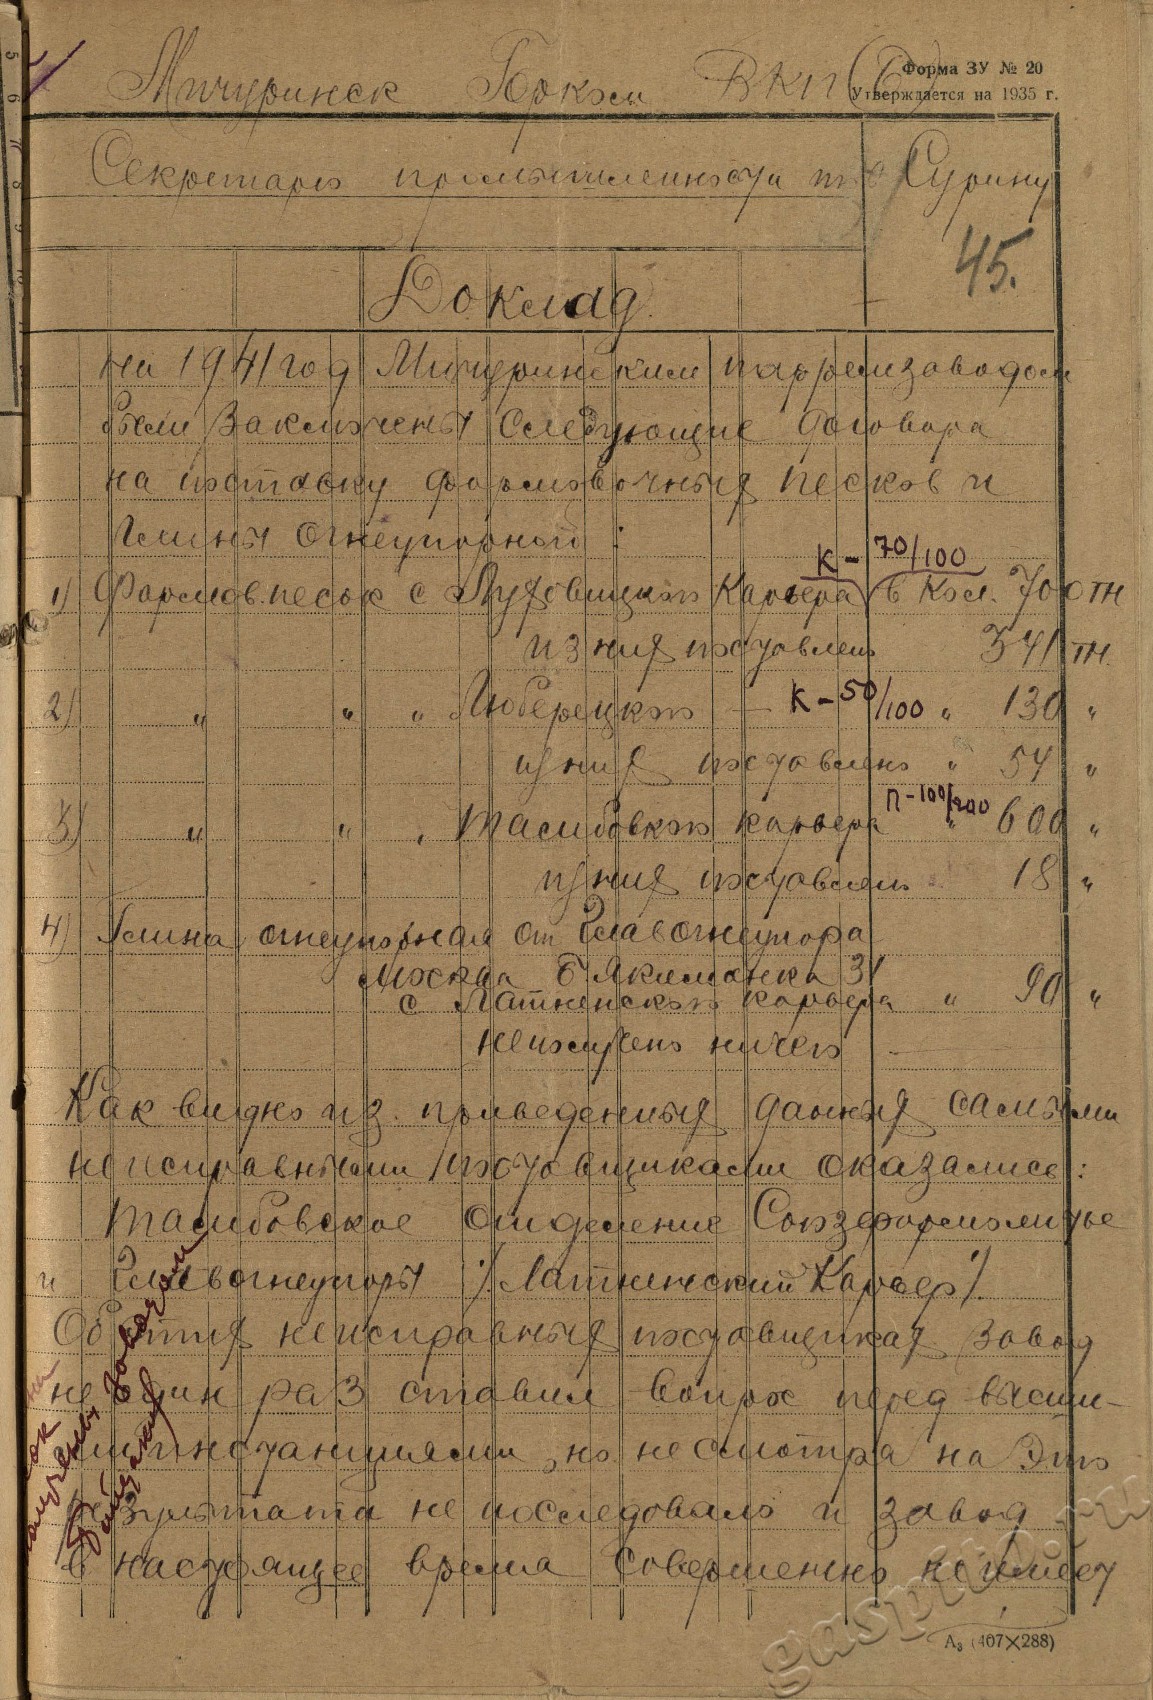 Форма ЗУ № 20
Утверждается на 1935 г.
Мичуринск Горком ВКП(б)
Секретарю промышленности т. Сурину
45.
Доклад.
на 1941 год Мичуринским парремзаводом
были заключены следующие договора
на поставку формовочных песков и
глины огнеупорной:
К-70/100
1) Формов. песок с Лужовицкого карьера в кол. 700 тн
из них поставлено 341 тн.
2) " " " Люберецкого — К-50/100 " 130 "
из них поставлено " 54 "
П-100/200
3) " " " Тамбовского карьера " 600 "
из них поставлено 18 "
4) Глина огнеупорная от Главогнеупора
Москва Б Якиманка 31
с Латненского карьера " 90 "
не получено ничего —
Как видно из приведенных данных самыми
неисправными поставщиками оказались:
Тамбовское отделение Союзформолитье
и Главогнеупоры /. Латненский Карьер /.
Об этих неисправных поставщиках завод
не один раз ставил вопрос перед высши-
ми инстанциями, но несмотря на это
результата не последовало и завод
в настоящее время совершенно не имеет
заводам
А₃ (407×288)
gaspito.ru